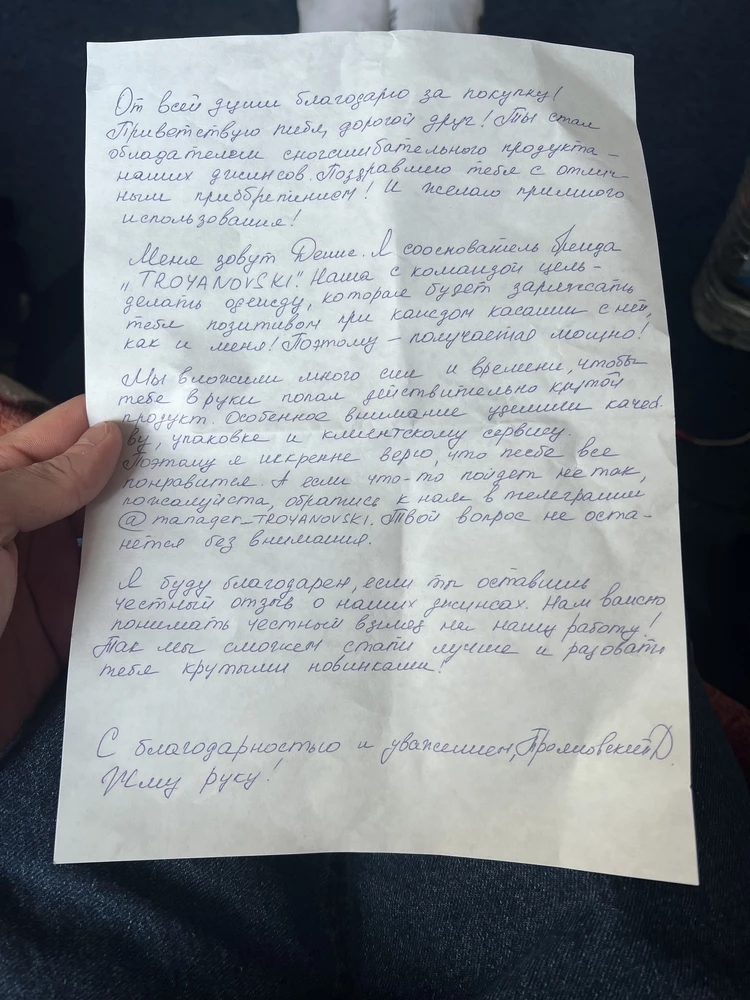 От всей души благодарю за покупку!
Приветствую тебя, дорогой друг! Ты стал
обладателем сногсшибательного продукта –
наших джинсов. Поздравляю тебя с отлич-
ным приобретением! И желаю приятного
использования!
Меня зовут Денис. Я сооснователь бренда
„TROYANOVSKI". Наша с командой цель –
делать одежду, которая будет заряжать
тебя позитивом при каждом касании с ней,
как и меня! Поэтому – получается мощно!
Мы вложили много сил и времени, чтобы
тебе в руки попал действительно крутой
продукт. Особенное внимание уделили качес
ву, упаковке и клиентскому сервису.
Поэтому я искренне верю, что тебе все
понравится. А если что-то пойдет не так,
пожалуйста, обратись к нам в телеграмм
@manager_TROYANOVSKI. Твой вопрос не оста-
нется без внимания.
Я буду благодарен, если ты оставишь
честный отзыв о наших джинсах. Нам важно
понимать честный взгляд на нашу работу!
Так мы сможем стать лучше и радовать
тебя крутыми новинками!
С благодарностью и уважением, Трояновский Д.
Жму руку!